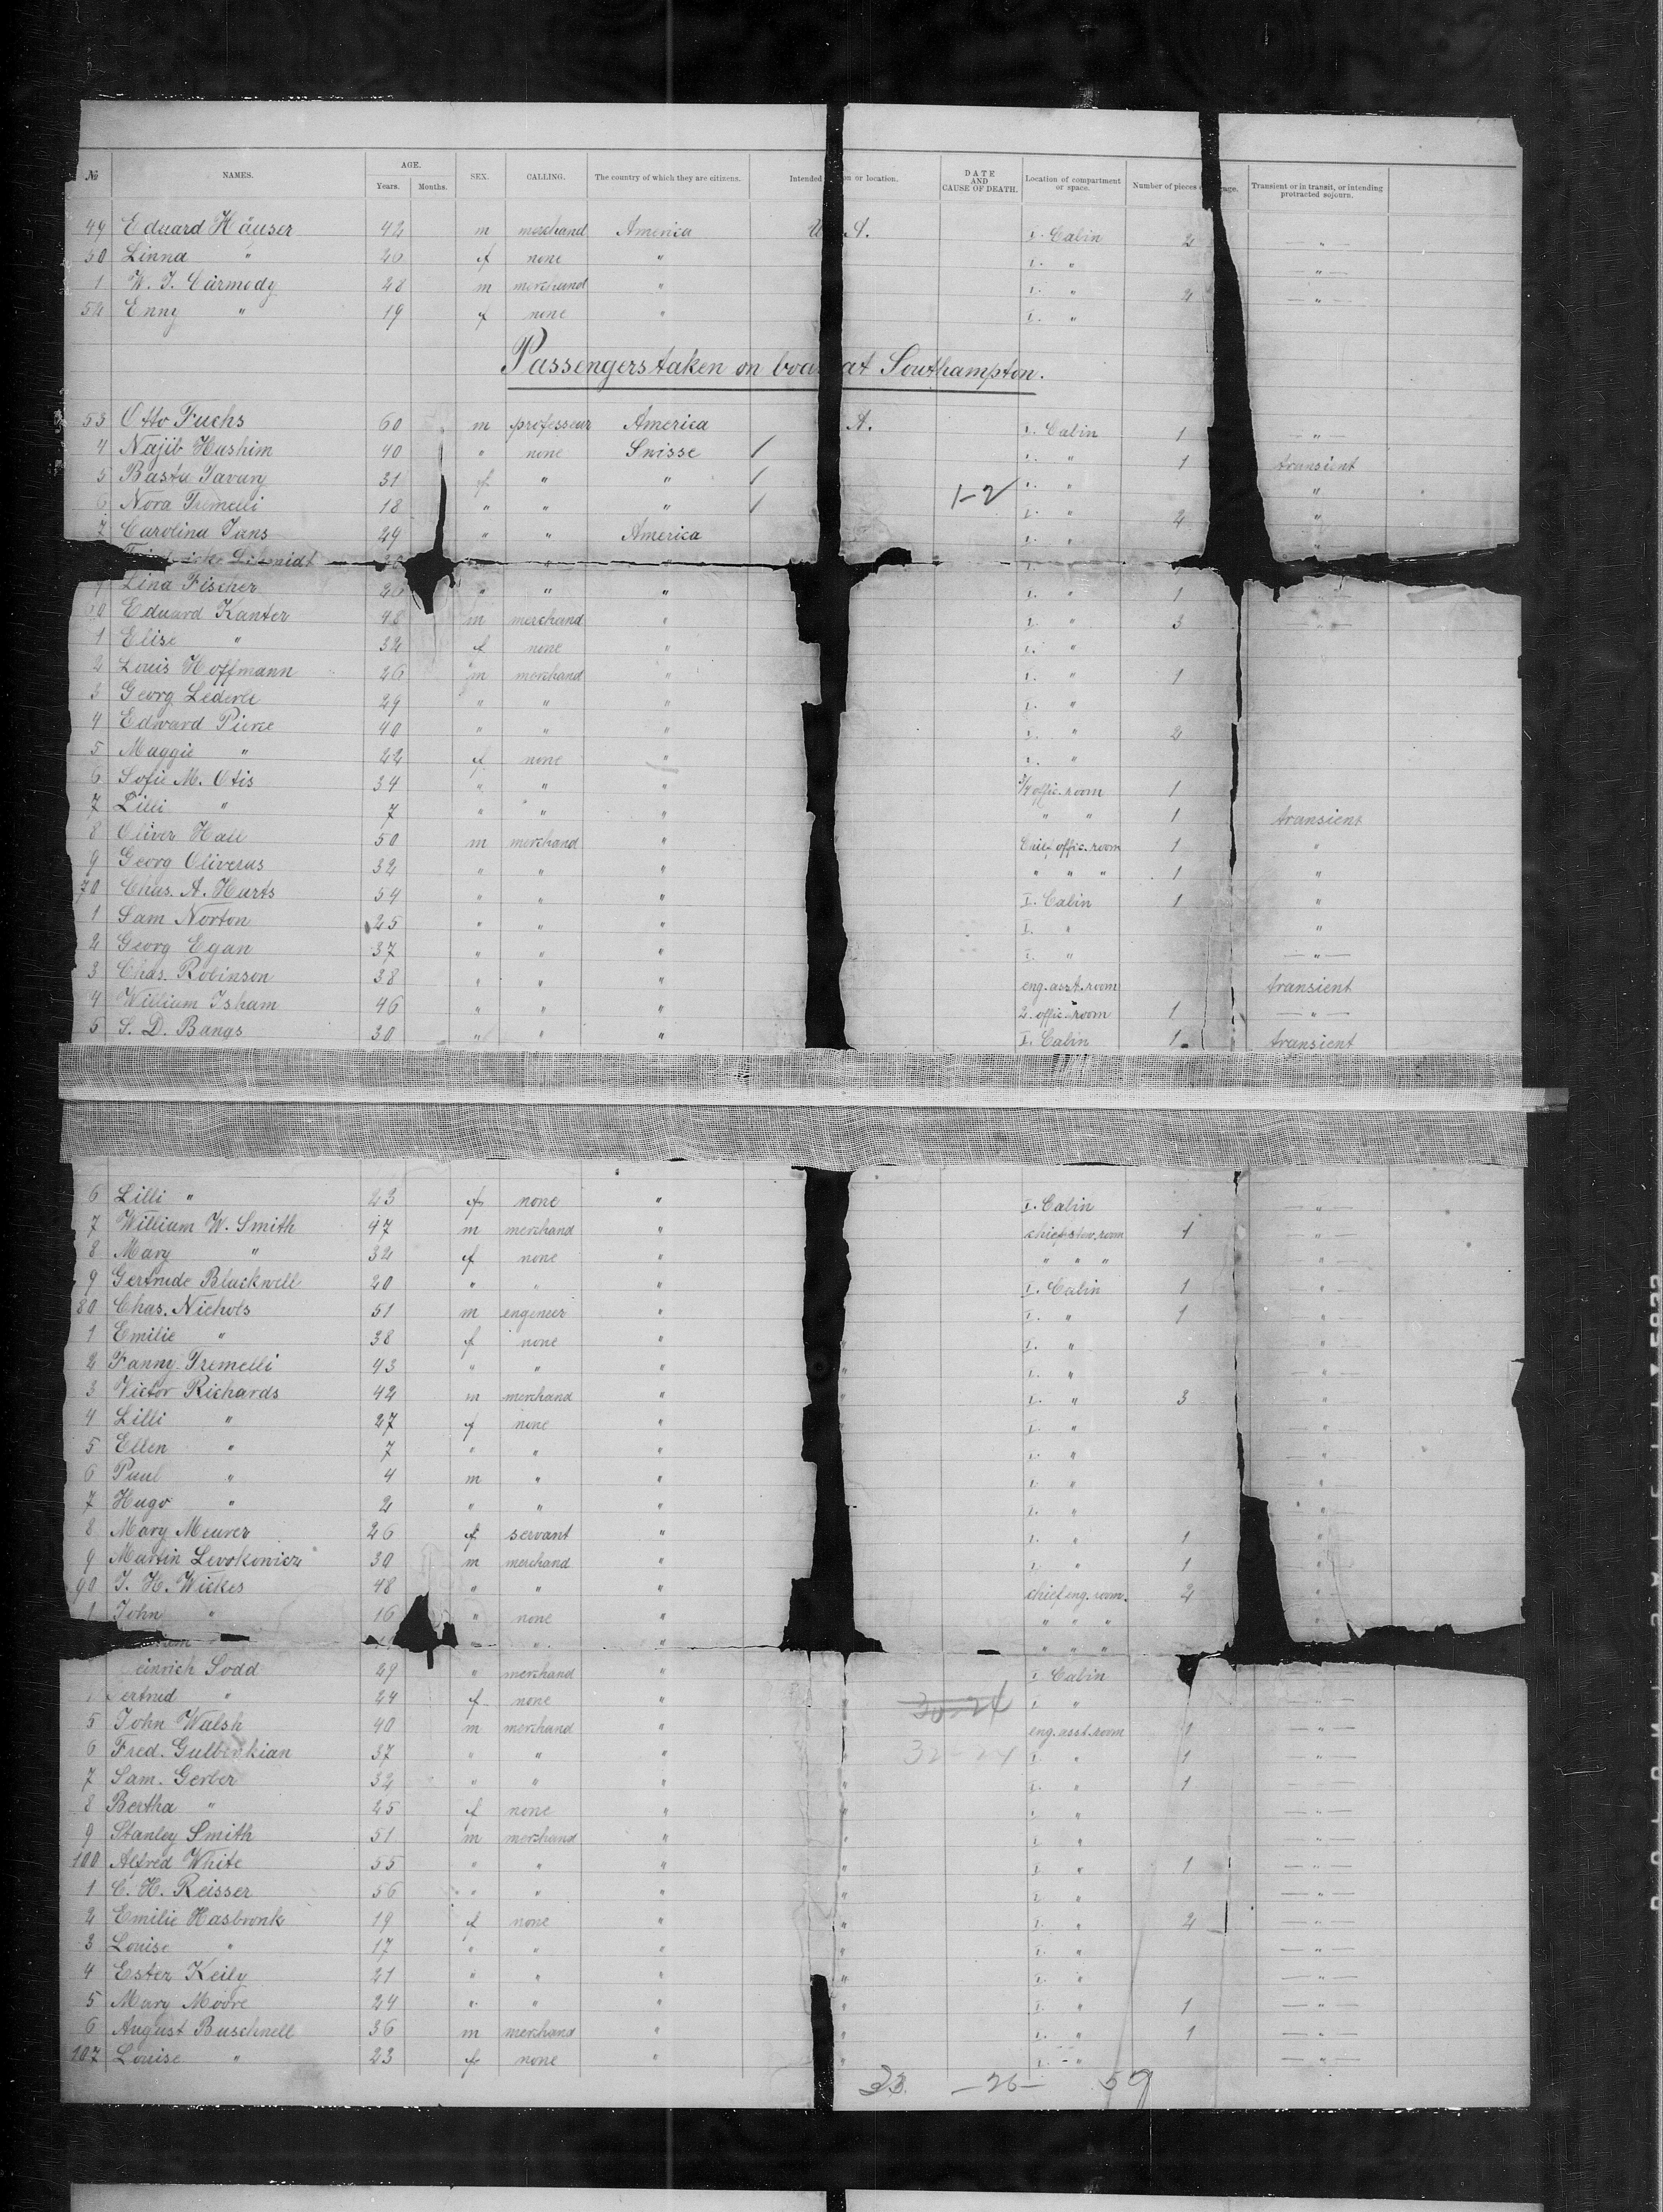 № NAMES. AGE. Years. Months. SEX. CALLING. The country of which they are citizens. Intended on or location. DATE AND CAUSE OF DEATH. Location of compartment or space. Number of pieces age. Transient or in transit, or intending protracted sojourn.
49 Eduard Häuser 42 m merchand America U A. I. Cabin 2 — " —
50 Linna " 26 f none " I. " — " —
1 W. J. Carmody 28 m merchand " I. " 2 — " —
52 Enny " 19 f none " I. "
Passengers taken on boa at Southampton.
53 Otto Fuchs 60 m professeur America A. I. Cabin 1 — " —
4 Najib Hashim 40 " none Swisse / I. " 1 transient
5 Basta Tavary 31 f " " / I. " "
6 Nora Tremelli 18 " " " / 1-2 I. " 2 "
7 Carolina Jans 29 " " America I. " "
Schmidt
9 Lina Fischer 26 " " " I. " 1 — " —
60 Eduard Kanter 48 m merchand " I. " 3 — " —
1 Elise " 32 f none " I. "
2 Louis Hoffmann 26 m merchand " I. " 1
3 Georg Lederle 29 " " " I. "
4 Edward Pierce 40 " " " I. " 2
5 Maggie " 22 f none " I. "
6 Sofie M. Otis 34 " " " 3/4 offic. room 1
7 Lilli " 7 " " " " " 1 transient
8 Oliver Hall 50 m merchand " Chief offic. room 1 "
9 Georg Oliverus 32 " " " " " " 1 "
70 Chas. A. Harts 54 " " " I. Cabin 1 "
1 Sam Norton 25 " " " I. " "
2 Georg Egan 37 " " " I. " — " —
3 Chas. Robinson 38 " " " eng. asst. room transient
4 William Isham 46 " " " 2. offic. room 1 — " —
5 S. D. Bangs 30 " " " I. Cabin 1 transient
6 Lilli " 23 f none " I. Cabin — " —
7 William W. Smith 47 m merchand " chief stew. room 1 — " —
8 Mary " 32 f none " " " " — " —
9 Gertrude Blackwell 20 " " " I. Cabin 1 "
80 Chas. Nichols 51 m engeneer " I. " 1 "
1 Emilie " 38 f none " " I. " — " —
2 Fanny Tremelli 43 " " " " I. " — " —
3 Victor Richards 42 m merchand " " I. " 3 "
4 Lilli " 27 f none " I. " "
5 Ellen " 7 " " " I. " "
6 Paul " 4 m " " I. " "
7 Hugo " 2 " " " I. " "
8 Mary Meurer 26 f servant " I. " 1 "
9 Martin Levokowicz 30 m merchand " I. " 1 "
90 J. H. Wickes 48 " " " chief eng. room. 2 "
1 John " 16 " none " " " " "
" " " " "
einrich Sodd 29 " merchand " I. Cabin
ertrud " 24 f none " " 30-24 I. " — " —
5 John Walsh 40 m merchand " " eng. asst. room 1 — " —
6 Fred. Gulbenkian 37 " " " " 32-24 I. " 1 — " —
7 Sam. Gerber 32 " " " " I. " 1 — " —
8 Bertha " 25 f none " " I. " — " —
9 Stanley Smith 51 m merchand " " I. " — " —
100 Alfred White 55 " " " " I. " 1 — " —
1 C. H. Reisser 56 " " " " I. " — " —
2 Emilie Hasbronk 19 f none " " I. " 2 — " —
3 Louise " 17 " " " " I. " — " —
4 Ester Keily 21 " " " " I. " — " —
5 Mary Moore 24 " " " " I. " 1 — " —
6 August Buschnell 36 m merchand " " I. " 1 — " —
107 Louise " 23 f none " " I. " — " —
33 — 26 — 59